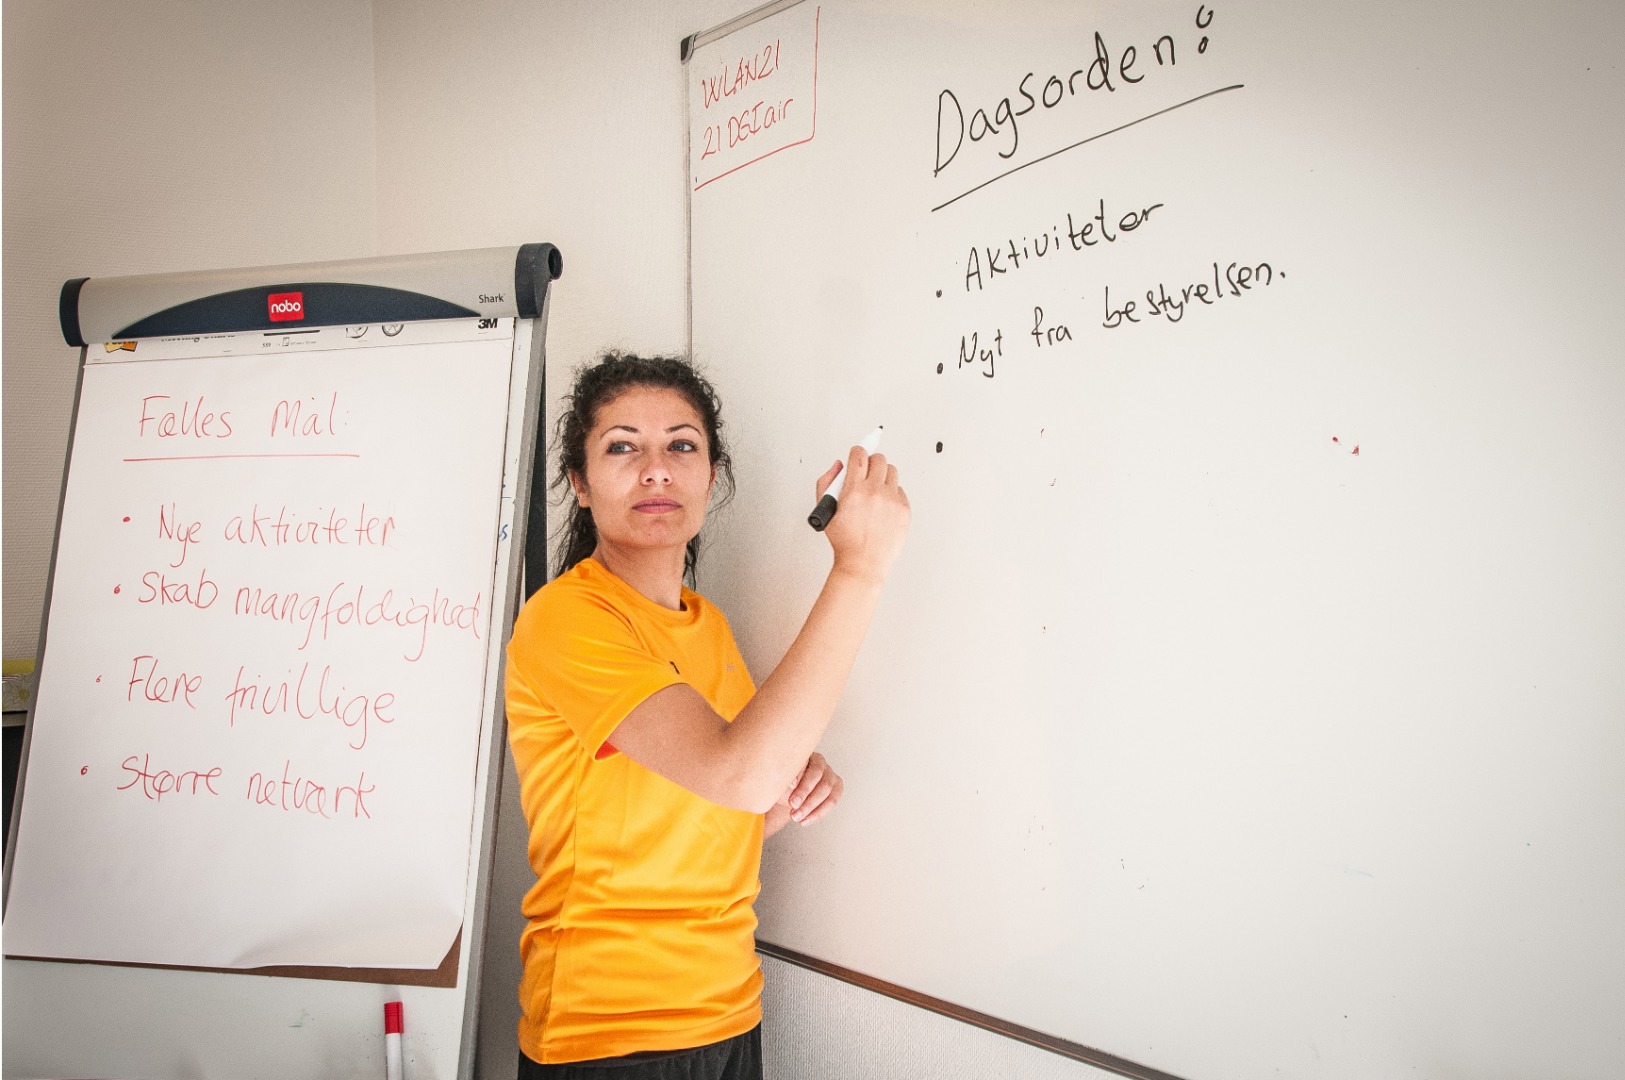 nobo
Shark
3M
Fælles Mål:
• Nye aktiviteter
• Skab mangfoldighed
• Flere frivillige
• Større netværk
WLAN21
21DGIair
Dagsorden:
• Aktiviteter
• Nyt fra bestyrelsen.
•